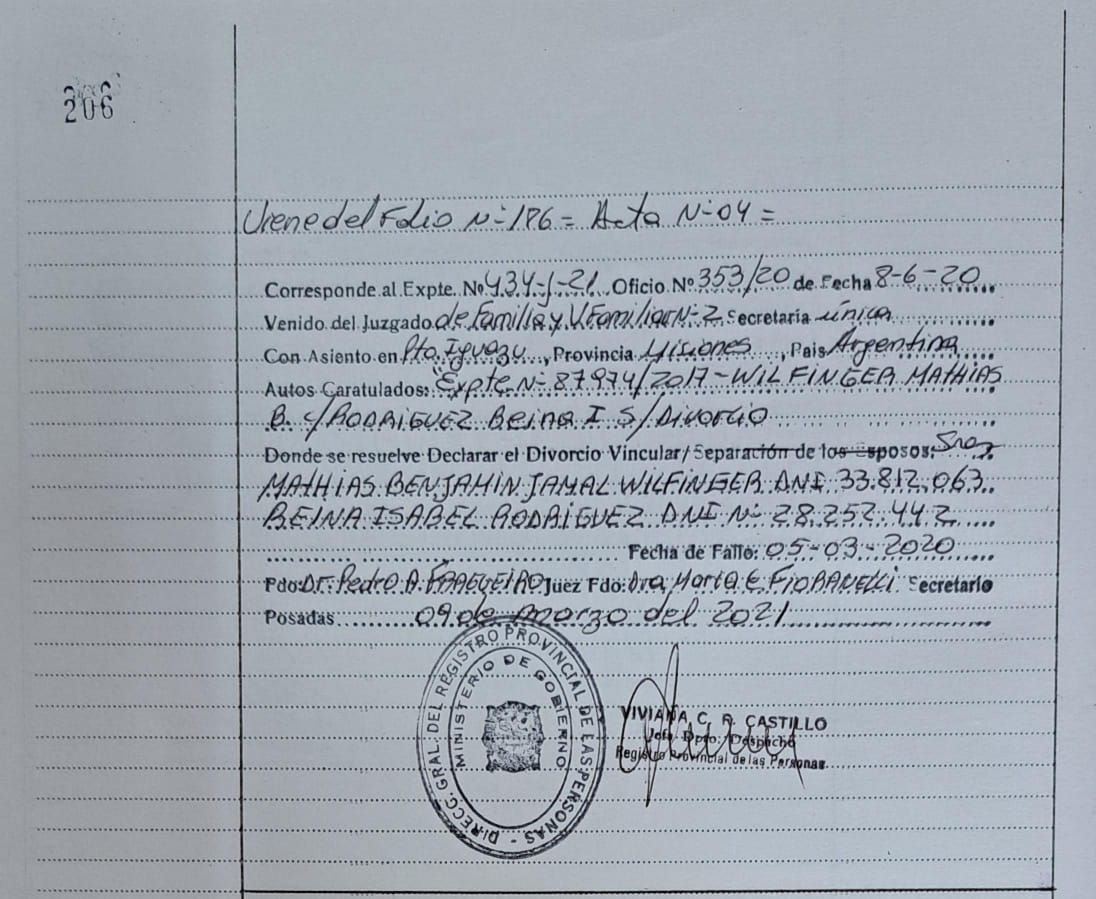 206
Viene del Folio N- 186 = Acta N-04 =
Corresponde al Expte. Nº 434-J-21. Oficio Nº 353/20 de Fecha 8-6-20
Venido del Juzgado de Familia y V. Familiar N-2 Secretaría única
Con Asiento en Pto. Iguazu, Provincia Misiones, Pais Argentina
Autos Caratulados: "Expte N- 87974/2017 - WILFINGER MATHIAS
B. c/ RODRIGUEZ Beina I S/ Divorcio
Donde se resuelve Declarar el Divorcio Vincular/Separación de los Esposos: Sres
MATHIAS BENJAMIN JAMAL WILFINGER DNI 33.812.063
BEINA ISABEL RODRIGUEZ DNI N- 28.252.442
Fecha de Fallo: 05-03-2020
Fdo: Dr. Pedro A. Juez Fdo: Dra Maria E FIORANELLI Secretario
Posadas 09 de marzo del 2021
DIRECC. GRAL. DEL REGISTRO PROVINCIAL DE LAS PERSONAS -
MINISTERIO DE GOBIERNO
VIVIANA C. R. CASTILLO
Jefa Dpto. Despacho
Registro Provincial de las Personas